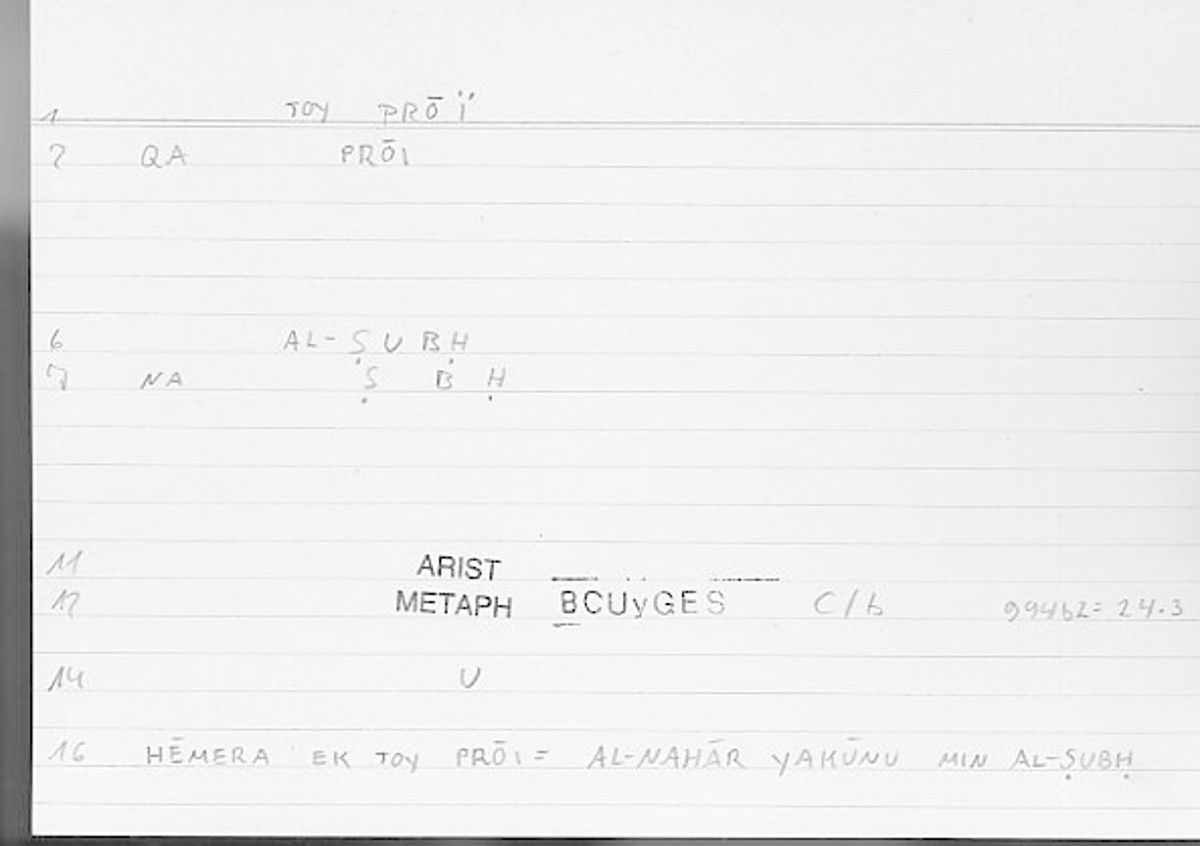 1 TOY PRŌÏ
2 QA PRŌI
6 AL-ṢUBḤ
7 NA Ṣ B Ḥ
11 ARIST
12 METAPH BCUyGES C/b 994b2=24.3
14 U
16 HĒMERA EK TOY PRŌI = AL-NAHĀR YAKŪNU MIN AL-ṢUBḤ